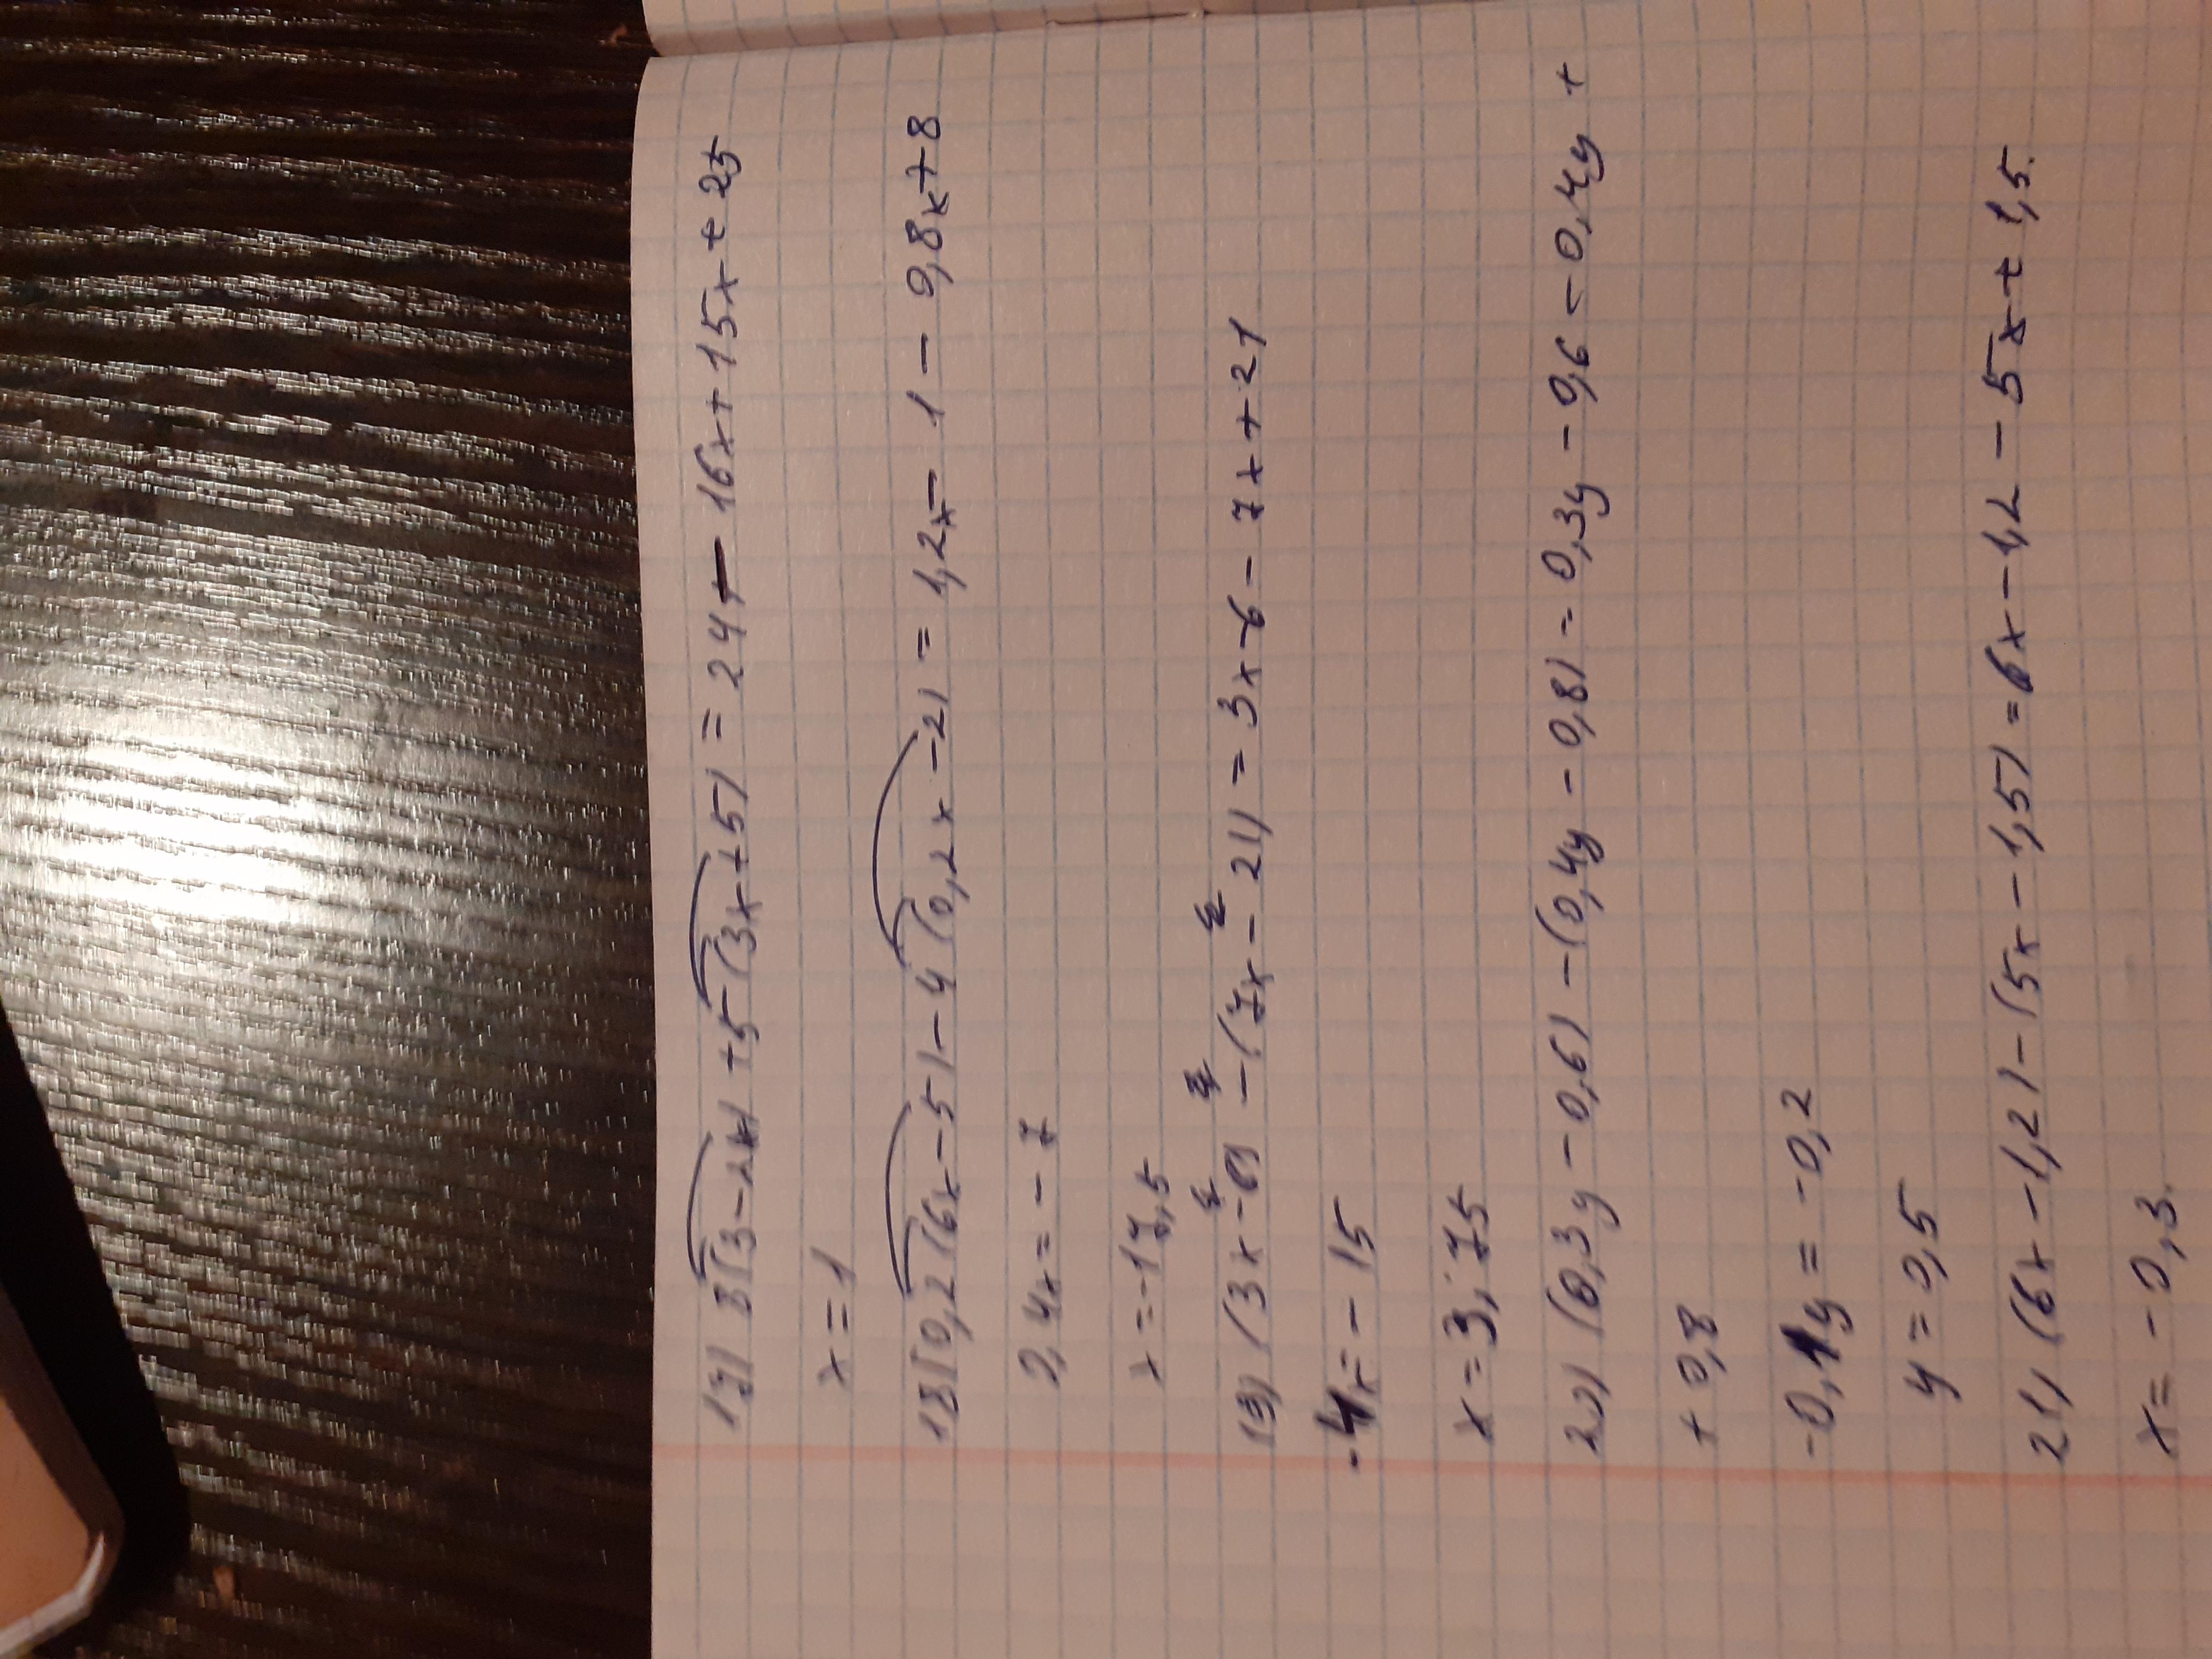 17) 8(3-2x) +5(3x+5) = 24 - 16x + 15x + 25
x = 1
18) 0,2(6x-5) - 4(0,2x-2) = 1,2x - 1 - 0,8x + 8
0,4x = - 7
x = -17,5
19) (3x-6) - (7x-21) = 3x-6 - 7x + 21
-4x = - 15
x = 3,75
20) (0,3y - 0,6) - (0,4y - 0,8) - 0,3y - 0,6 - 0,4y +
+ 0,8
-0,1y = -0,2
y = 0,5
21) (6x - 1,2) - (5x - 1,5) = 6x - 1,2 - 5x + 1,5.
x = - 0,3.